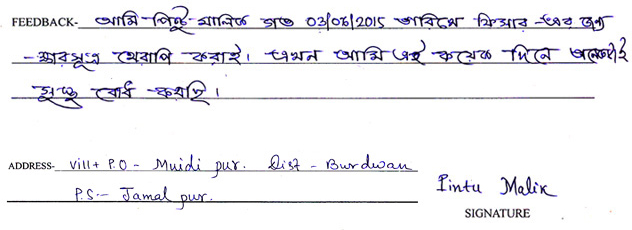 FEEDBACK- আমি পিন্টু মালিক গত 03/06/2015 তারিখে ফিসার -এর জন্য
-ক্ষারসূত্র থেরাপি করাই। এখন আমি এই কয়েক দিনে অনেকটাই
সুস্থ বোধ করছি।
ADDRESS- Vill+ P.O - Muidi pur. Dist - Burdwan
P.S:- Jamal pur.
Pintu Malik
SIGNATURE